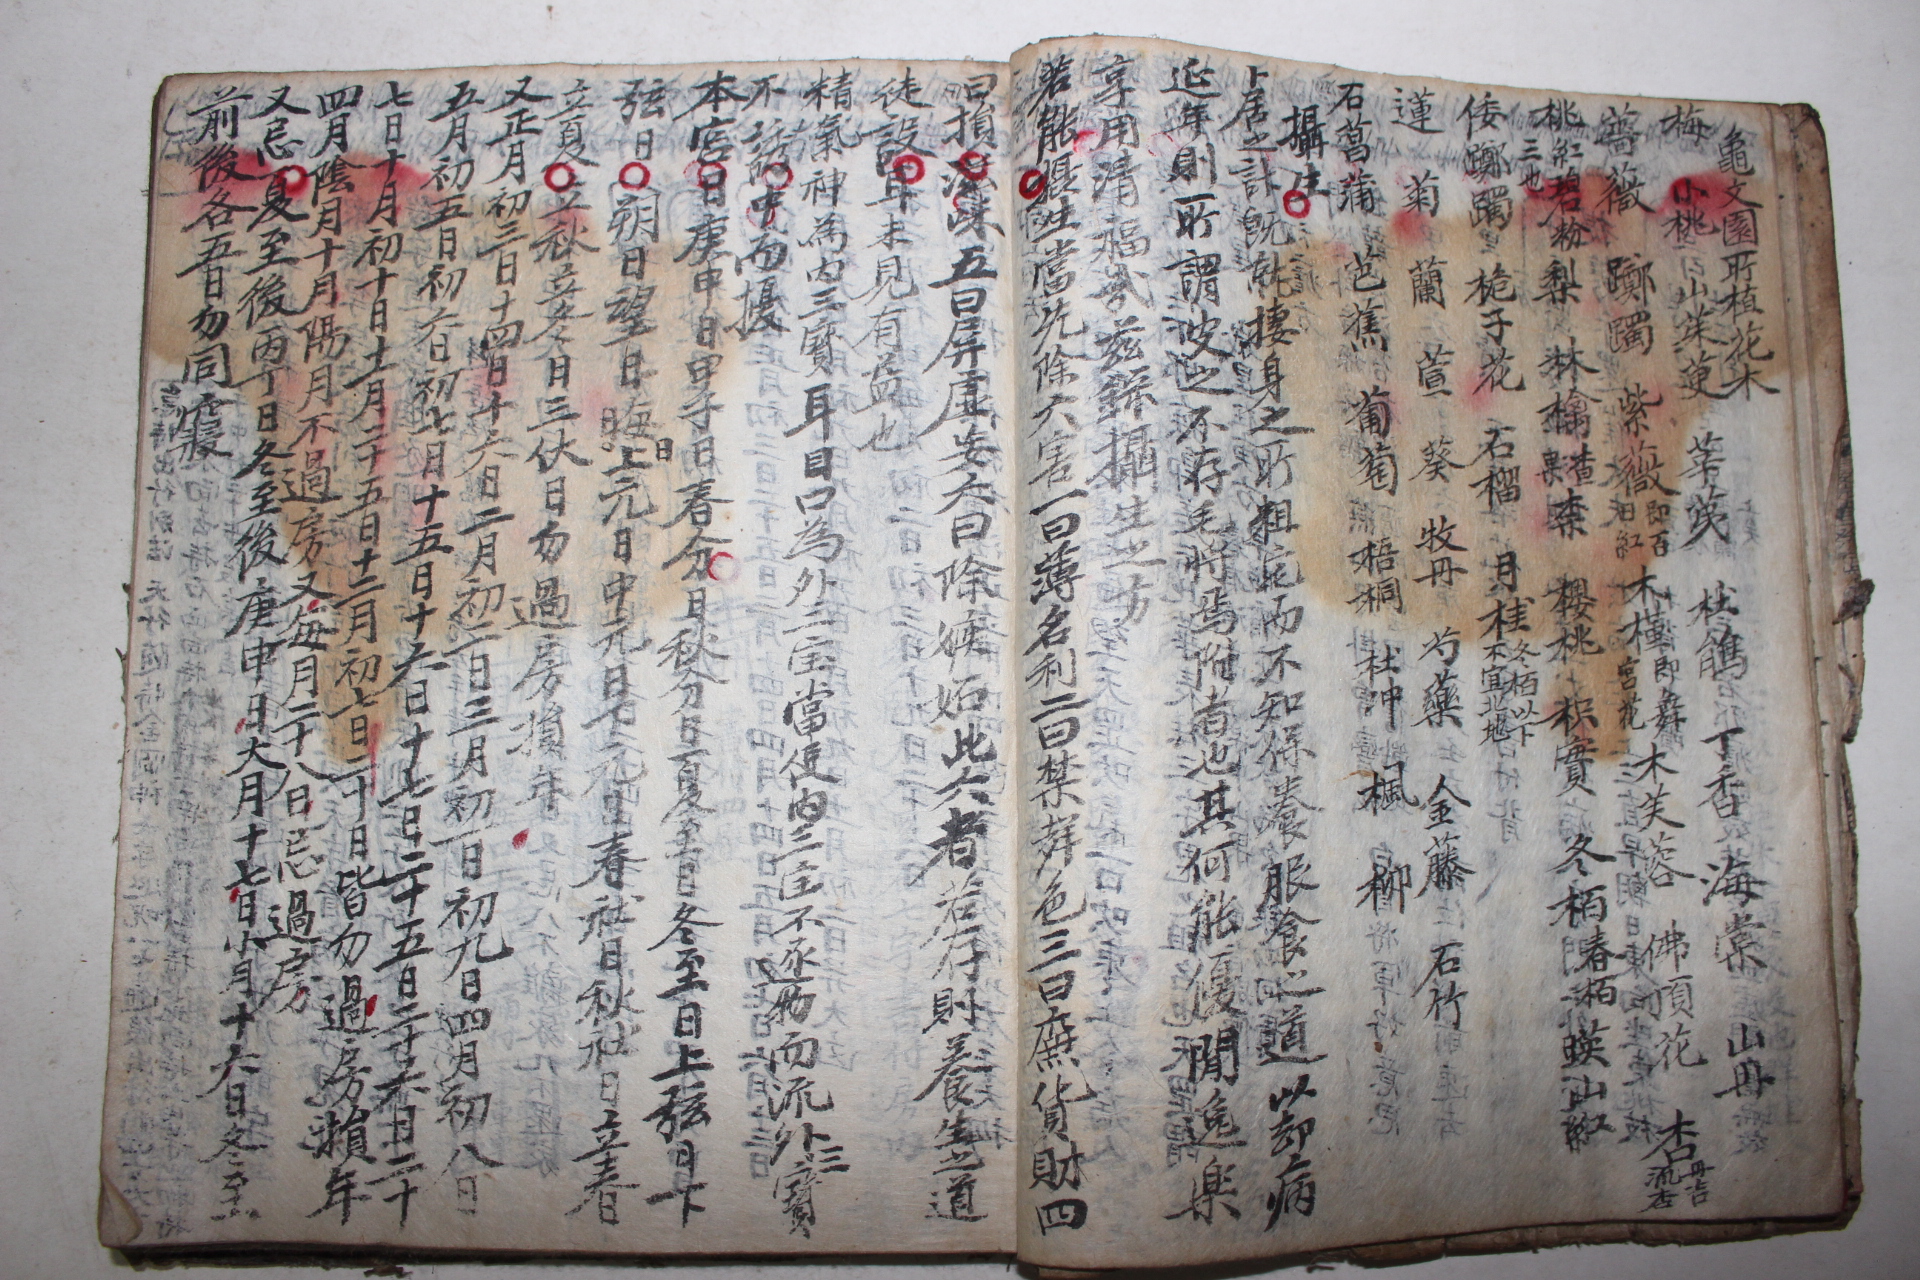 龜文園所植花木
梅 小桃 山茱萸 芍藥 杜鵑 丁香 海棠 山丹
薔薇 躑躅 紫薇 即百日紅 木槿 即彛宮花 木芙蓉 佛頂花 杏 丹杏流杏
桃 紅碧粉三也 梨 林檎 楂 柰 櫻桃 枳實 冬栢 春栢 暎山紅
倭躑躅 梔子花 石榴 月桂 冬栢以下不宜北地
蓮 菊 蘭 萱 葵 牧丹 芍藥 金藤 石竹
石菖蒲 芭蕉 葡萄 梧桐 杜冲 楓 柳
攝生
卜居之計旣就捿身之所粗完而不知保養服食之道以却病
延年則所謂皮之不存毛將焉附者也其何能優閒逸樂
享用清福哉茲錄攝生之方
若能攝生當先除六害一曰薄名利二曰禁群色三曰廉貨財四
曰損滋味五曰屏虛妄六曰除嫉妬此六者若存則養生之道
徒設耳未見有益也
精氣神為內三寶耳目口為外三宝當使內三宝不逐物而流外三寶
不誘中而擾
本宮日庚申日甲子日春分日秋分日夏至日冬至日上弦日下
弦日朔日望日晦日上元日中元日下元日春社日秋社日立春
立夏立秋立冬日三伏日勿過房損年
又正月初三日十四日十六日二月初二日三月初一日初九日四月初八日
五月初五日初六日初七日十五日十六日十七日二十五日二十六日二十
七日十月初十日十一月二十五日十二月初七日二十日皆勿過房損年
四月陰月十月陽月不過房又每月二十八日忌過房
又忌夏至後丙丁日冬至後庚申日大月十七日小月十六日冬至
前後各五日勿同寢